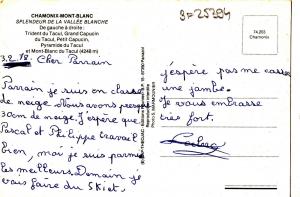 CHAMONIX-MONT-BLANC
SPLENDEUR DE LA VALLÉE BLANCHE
De gauche à droite :
Trident du Tacul, Grand Capucin,
du Tacul, Petit Capucin,
Pyramide du Tacul
et Mont-Blanc du Tacul (4248 m)
74.203
Chamonix
Cher Parrain
Parrain je suis en classe
de neige. Nous avons presque
30cm de neige. J'espère que
Pascal et Philippe travail
bien, moi je suis parmi
les meilleurs. Demain je
vais faire du ski et
j'espère pas me casse
une jambe.
Je vous embrasse
très fort.